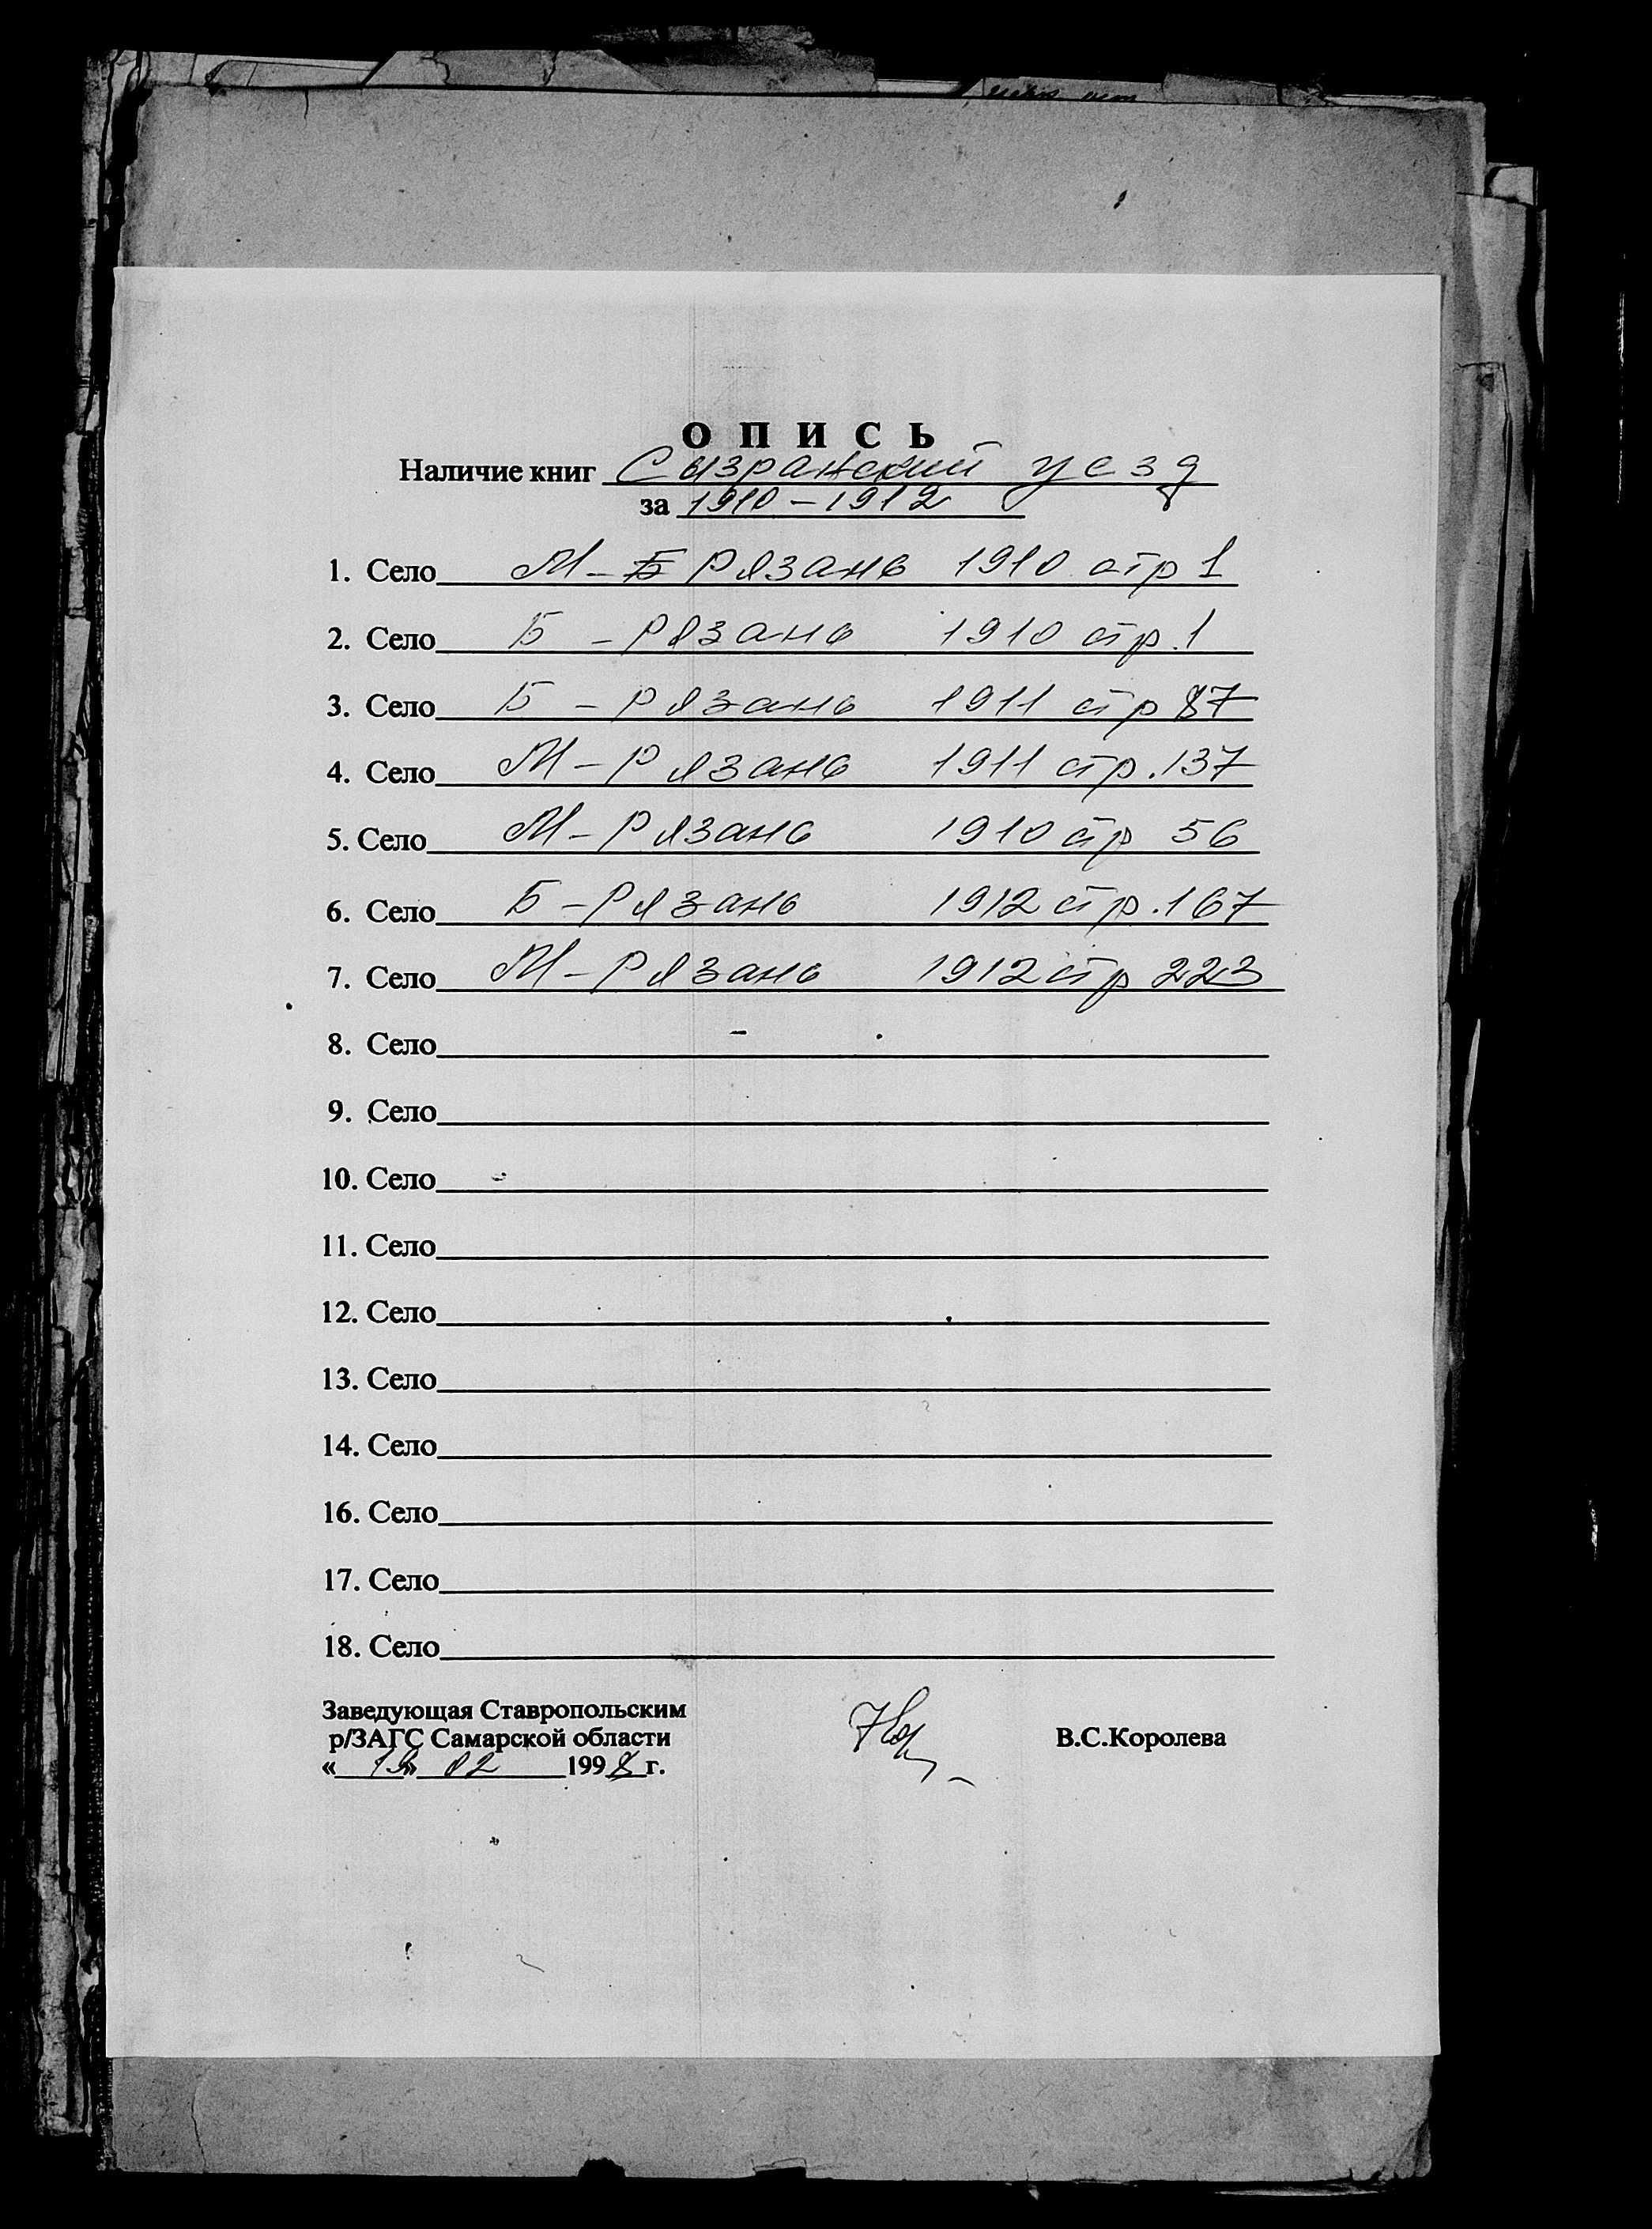 О П И С Ь
Наличие книг Сызранский уезд
за 1910 – 1912
1. Село М - Б Рязань 1910 стр 1
2. Село Б - Рязань 1910 стр. 1
3. Село Б - Рязань 1911 стр 87
4. Село М - Рязань 1911 стр. 137
5. Село М - Рязань 1910 стр 56
6. Село Б - Рязань 1912 стр. 167
7. Село М - Рязань 1912 стр 223
8. Село
9. Село
10. Село
11. Село
12. Село
13. Село
14. Село
16. Село
17. Село
18. Село
Заведующая Ставропольским
р/ЗАГС Самарской области В.С.Королева
« 19 » 02 1998 г.